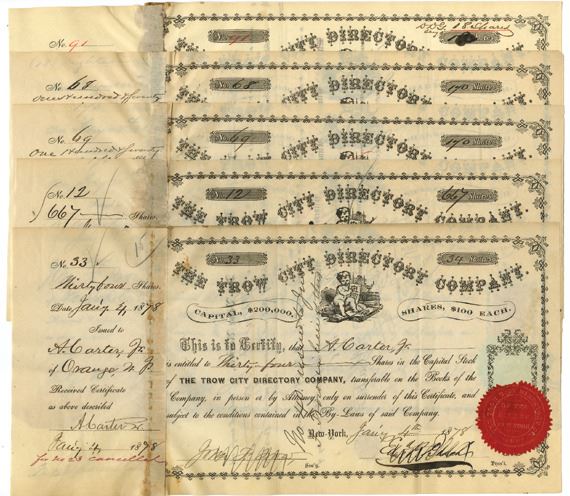 No. 91
No. 91
18 Shares
CITY DIRECTORY
No. 68
One Hundred & Seventy
No. 68
170 Shares
CITY DIRECTORY
No. 69
One Hundred & Seventy
No. 69
170 Shares
CITY DIRECTORY
No. 12
667 Shares
No. 12
667 Shares
THE TROW CITY DIRECTORY COMPANY.
No. 33
Thirty four Shares
Date, Jany 4, 1878
Issued to
A. Carter, Jr.
of Orange, N. J.
Received Certificate
as above described
A Carter Jr.
Jany 4 1878
No. 33
34 Shares
THE TROW CITY DIRECTORY COMPANY.
CAPITAL, $200,000.
SHARES, $100 EACH.
This is to Certify, that A. Carter, Jr.
is entitled to Thirty four Shares in the Capital Stock
OF THE TROW CITY DIRECTORY COMPANY, transferable on the Books of the
Company, in person or by Attorney, only on surrender of this Certificate, and
subject to the conditions contained in the By-Laws of said Company.
New-York, Jany 4th 1878
Sec'y.
Pres't.